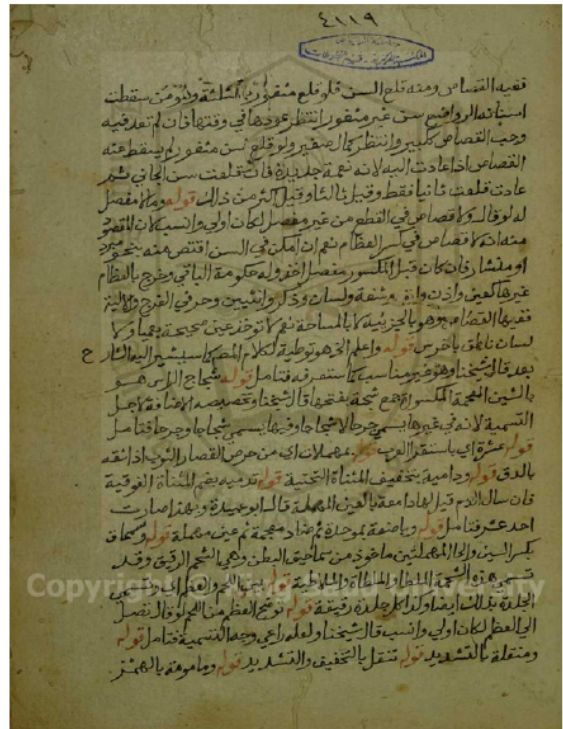 ٤١١٩
ففيه القصاص ومنه قلع السن فلو قلع مثغور بالمثلثة سن من سقطت
اسنانه الرواضع سن غير مثغور انتظر عودها في وقتها فان لم تعد فيه
وجب القصاص كبير وانتظر كمال صغير ولو قلع سن مثغور لم يسقط عنه
القصاص اذا عادت اليه لانه نعمة جديدة فان قلعت سن الجاني ثم
عادت قلعت ثانيا فقط وقيل ثالثا وقيل اكثر من ذلك قوله وما لا مفصل
له لو قال ولا قصاص في القطع من غير مفصل لكان اولى وانسب لان المقصود
منه انه لا قصاص في كسر العظام نعم ان امكن في السن اقتص منه بنحو مبرد
او منشار فان كان قبل المكسور مفصل اخذ وله حكومة الباقي وخرج بالعظام
غيرها كعين واذن وانف وشفة ولسان وذكر وانثيين وحرفي الفرج والالية
ففيها القصاص وهو بالجزئية لا بالمساحة نعم لا توخذ عين صحيحة بعمياء ولا
لسان ناطق باخرس قوله واعلم الخ هو توطية لكلام المص كما سيشير اليه الشارح
بعد قال شيخنا وهو غير مناسب كما ستعرفه فتامل قوله شجاج الراس هو
بالشين المعجمة المكسورة جمع شجة بفتحها قال شيخنا وتخصيصه الاضافة لاجل
التسمية لانه في غيرها يسمى جرحا لا شجاجا وفيها يسمى شجاجا وجرحا فتامل
قوله عشرة اي باستقراء العرب قوله بمهملات اي من حرص القصار الثوب اذا شقه
بالدق قوله ودامية بتخفيف المثناة التحتية قوله تدميه بضم المثناة الفوقية
فان سال الدم قيل لها دامعة بالعين المهملة قاله ابو عبيدة وبهذا صارت
احد عشر فتامل قوله وباضعة بموحدة ثم ضاد معجمة ثم عين مهملة قوله وسمحاق
بكسر السين والحا المهملتين ماخوذ من سماحيق البطن وهي الشحم الرقيق وقد
تسمى هذه الشجة الملطا والملطاة واللاطية قوله بين اللحم والعظم اي وتسمى
الجلدة بذلك ايضا وكذا كل جلدة رقيقة قوله توضح العظم من اللحم لو قال تصل
الى العظم لكان اولى وانسب قال شيخنا ولعله راعى وجه التسمية فتامل قوله
ومنقلة بالتشديد قوله تنقل بالتخفيف والتشديد قوله ومامومة بالهمز
Copyright © King Saud University